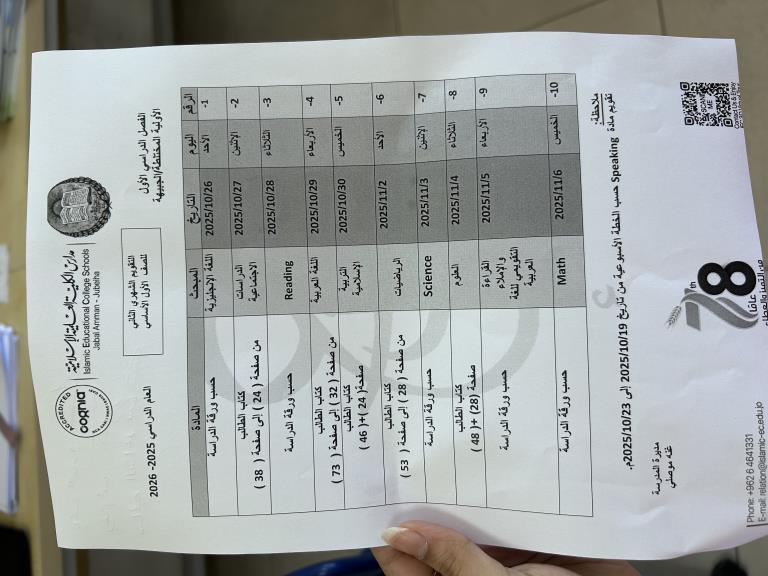 مدارس الكلية العلمية الإسلامية
Islamic Educational College Schools
Jabal Amman - Jubeiha
ACCREDITED
cognia
الفصل الدراسي الأول
الأولية المختلطة/الجبيهة
التقويم الشهري الثاني
للصف الأول الأساسي
العام الدراسي 2025- 2026
الرقم اليوم التاريخ المبحث المادة
1- الأحد 2025/10/26 اللغة الإنجليزية حسب ورقة الدراسة
2- الإثنين 2025/10/27 الدراسات الاجتماعية كتاب الطالب
من صفحة ( 24 ) إلى صفحة ( 38 )
3- الثلاثاء 2025/10/28 Reading حسب ورقة الدراسة
4- الأربعاء 2025/10/29 اللغة العربية كتاب الطالب
من صفحة ( 32 ) إلى صفحة ( 73 )
5- الخميس 2025/10/30 التربية الإسلامية كتاب الطالب
صفحة( 24 )+( 46 )
6- الأحد 2025/11/2 الرياضيات كتاب الطالب
من صفحة ( 28 ) إلى صفحة ( 53 )
7- الإثنين 2025/11/3 Science حسب ورقة الدراسة
8- الثلاثاء 2025/11/4 العلوم كتاب الطالب
صفحة (28) +( 48 )
9- الأربعاء 2025/11/5 القراءة والإملاء التقويمي للغة العربية حسب ورقة الدراسة
10- الخميس 2025/11/6 Math حسب ورقة الدراسة
ملاحظة:
تقويم مادة Speaking حسب الخطة الأسبوعية من تاريخ 2025/10/19 إلى 2025/10/23م.
مديرة المدرسة
SCAN ME
Contact Us & Enjoy
78th
عامًا
من التميز والعطاء
Phone: +962 6 4641331
E-mail: relation@islamic-ec.edu.jo